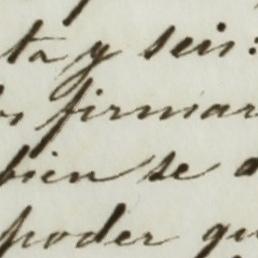 ta y seis:
firmar
bien se a
poder qu